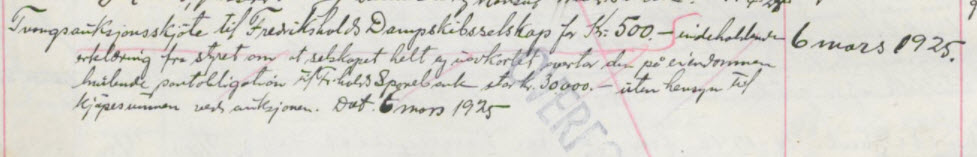 Tvangsauksjonsskjøte til Fredrikshalds Dampskibsselskap for Kr. 500.- indeholdende 6 mars 1925.
erklæring fra styret om at selskapet helt og uavkortet overtar den på eiendommen
heftende pantobligation til Fr.halds Sparebank stor kr. 30000.- uten hensyn til
kjøpesummen ved auksjonen. Dat. 6 mars 1925
OVERF